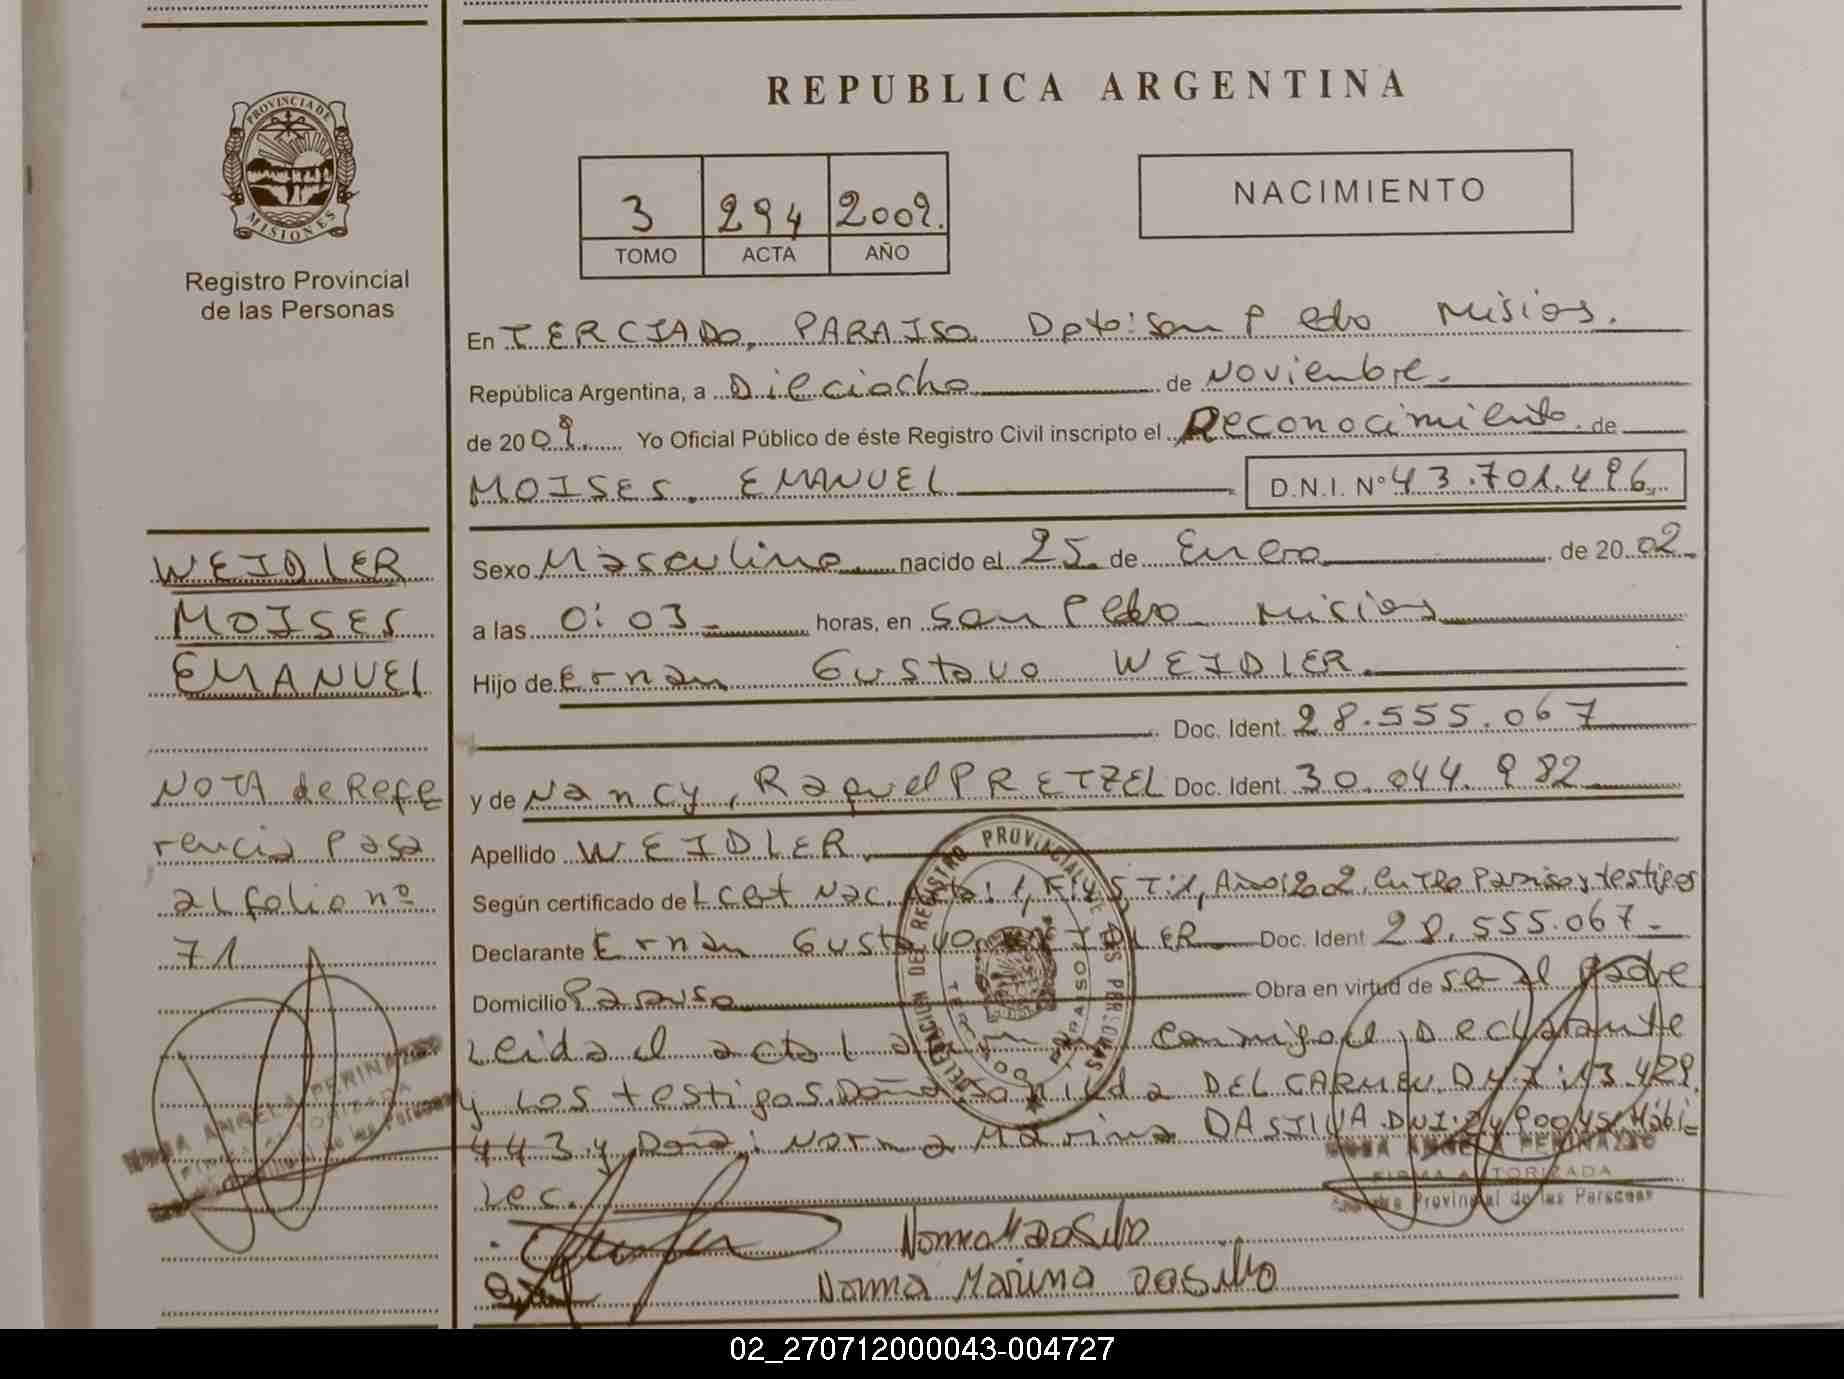 REPUBLICA ARGENTINA
PROVINCIA DE MISIONES
Registro Provincial
de las Personas
3 294 2009.
TOMO ACTA AÑO
NACIMIENTO
En TERCIADO, PARAISO. Dpto: San Pedro Misios.
República Argentina, a Dieciocho de Noviembre.
de 2009. Yo Oficial Público de éste Registro Civil inscripto el Reconocimiento de
MOISES. EMANUEL D.N.I. Nº 43.701.496.
WEIDLER
MOISES
EMANUEL
Sexo Masculino nacido el 25 de Enero de 2002
a las 0:03 horas, en San Pedro Misios
Hijo de Ernan Gustavo WEIDLER.
Doc. Ident. 28.555.067
y de Nancy, Raquel PRETZEL Doc. Ident. 30.044.982
Apellido WEIDLER
NOTA de Refe
rencia Pasa
al folio nº
71
Según certificado de testigos
Declarante Ernan Gustavo WEIDLER Doc. Ident 28.555.067
Domicilio Paraiso Obra en virtud de ser el padre
Leida el acta conmigo el Declarante
y Los testigos Doña DEL CARMEN D.N.I: 13.429.
443 y Doña: Norma Marina DASILVA D.N.I: Hábi
Les.
DELEGACION DEL REGISTRO PROVINCIAL DE LAS PERSONAS
ROSA ANGELA PERINAZZO
FIRMA AUTORIZADA
Registro Provincial de las Personas
Norma M Dasilva
Norma Marina Dasilva
02_270712000043-004727